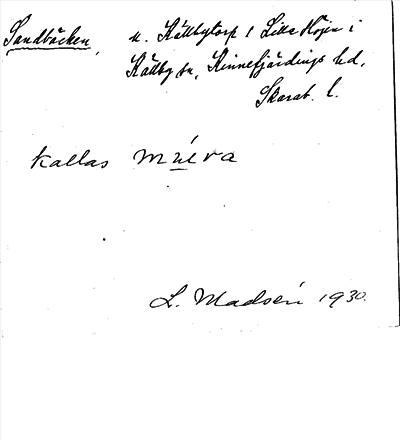 Sandbäcken, u. Källbytorp 1 Lilla Höjen i
Källby sn, Kinnefjärdings hd,
Skarab. l.
kallas múlva
L. Madsén 1930.